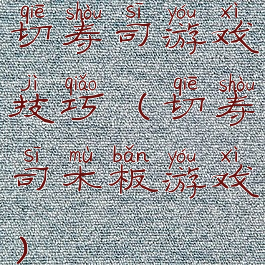 qiē shòu sī yóu xì
切寿司游戏
jì qiǎo qiē shòu
技巧（切寿
sī mù bǎn yóu xì
司木板游戏
）